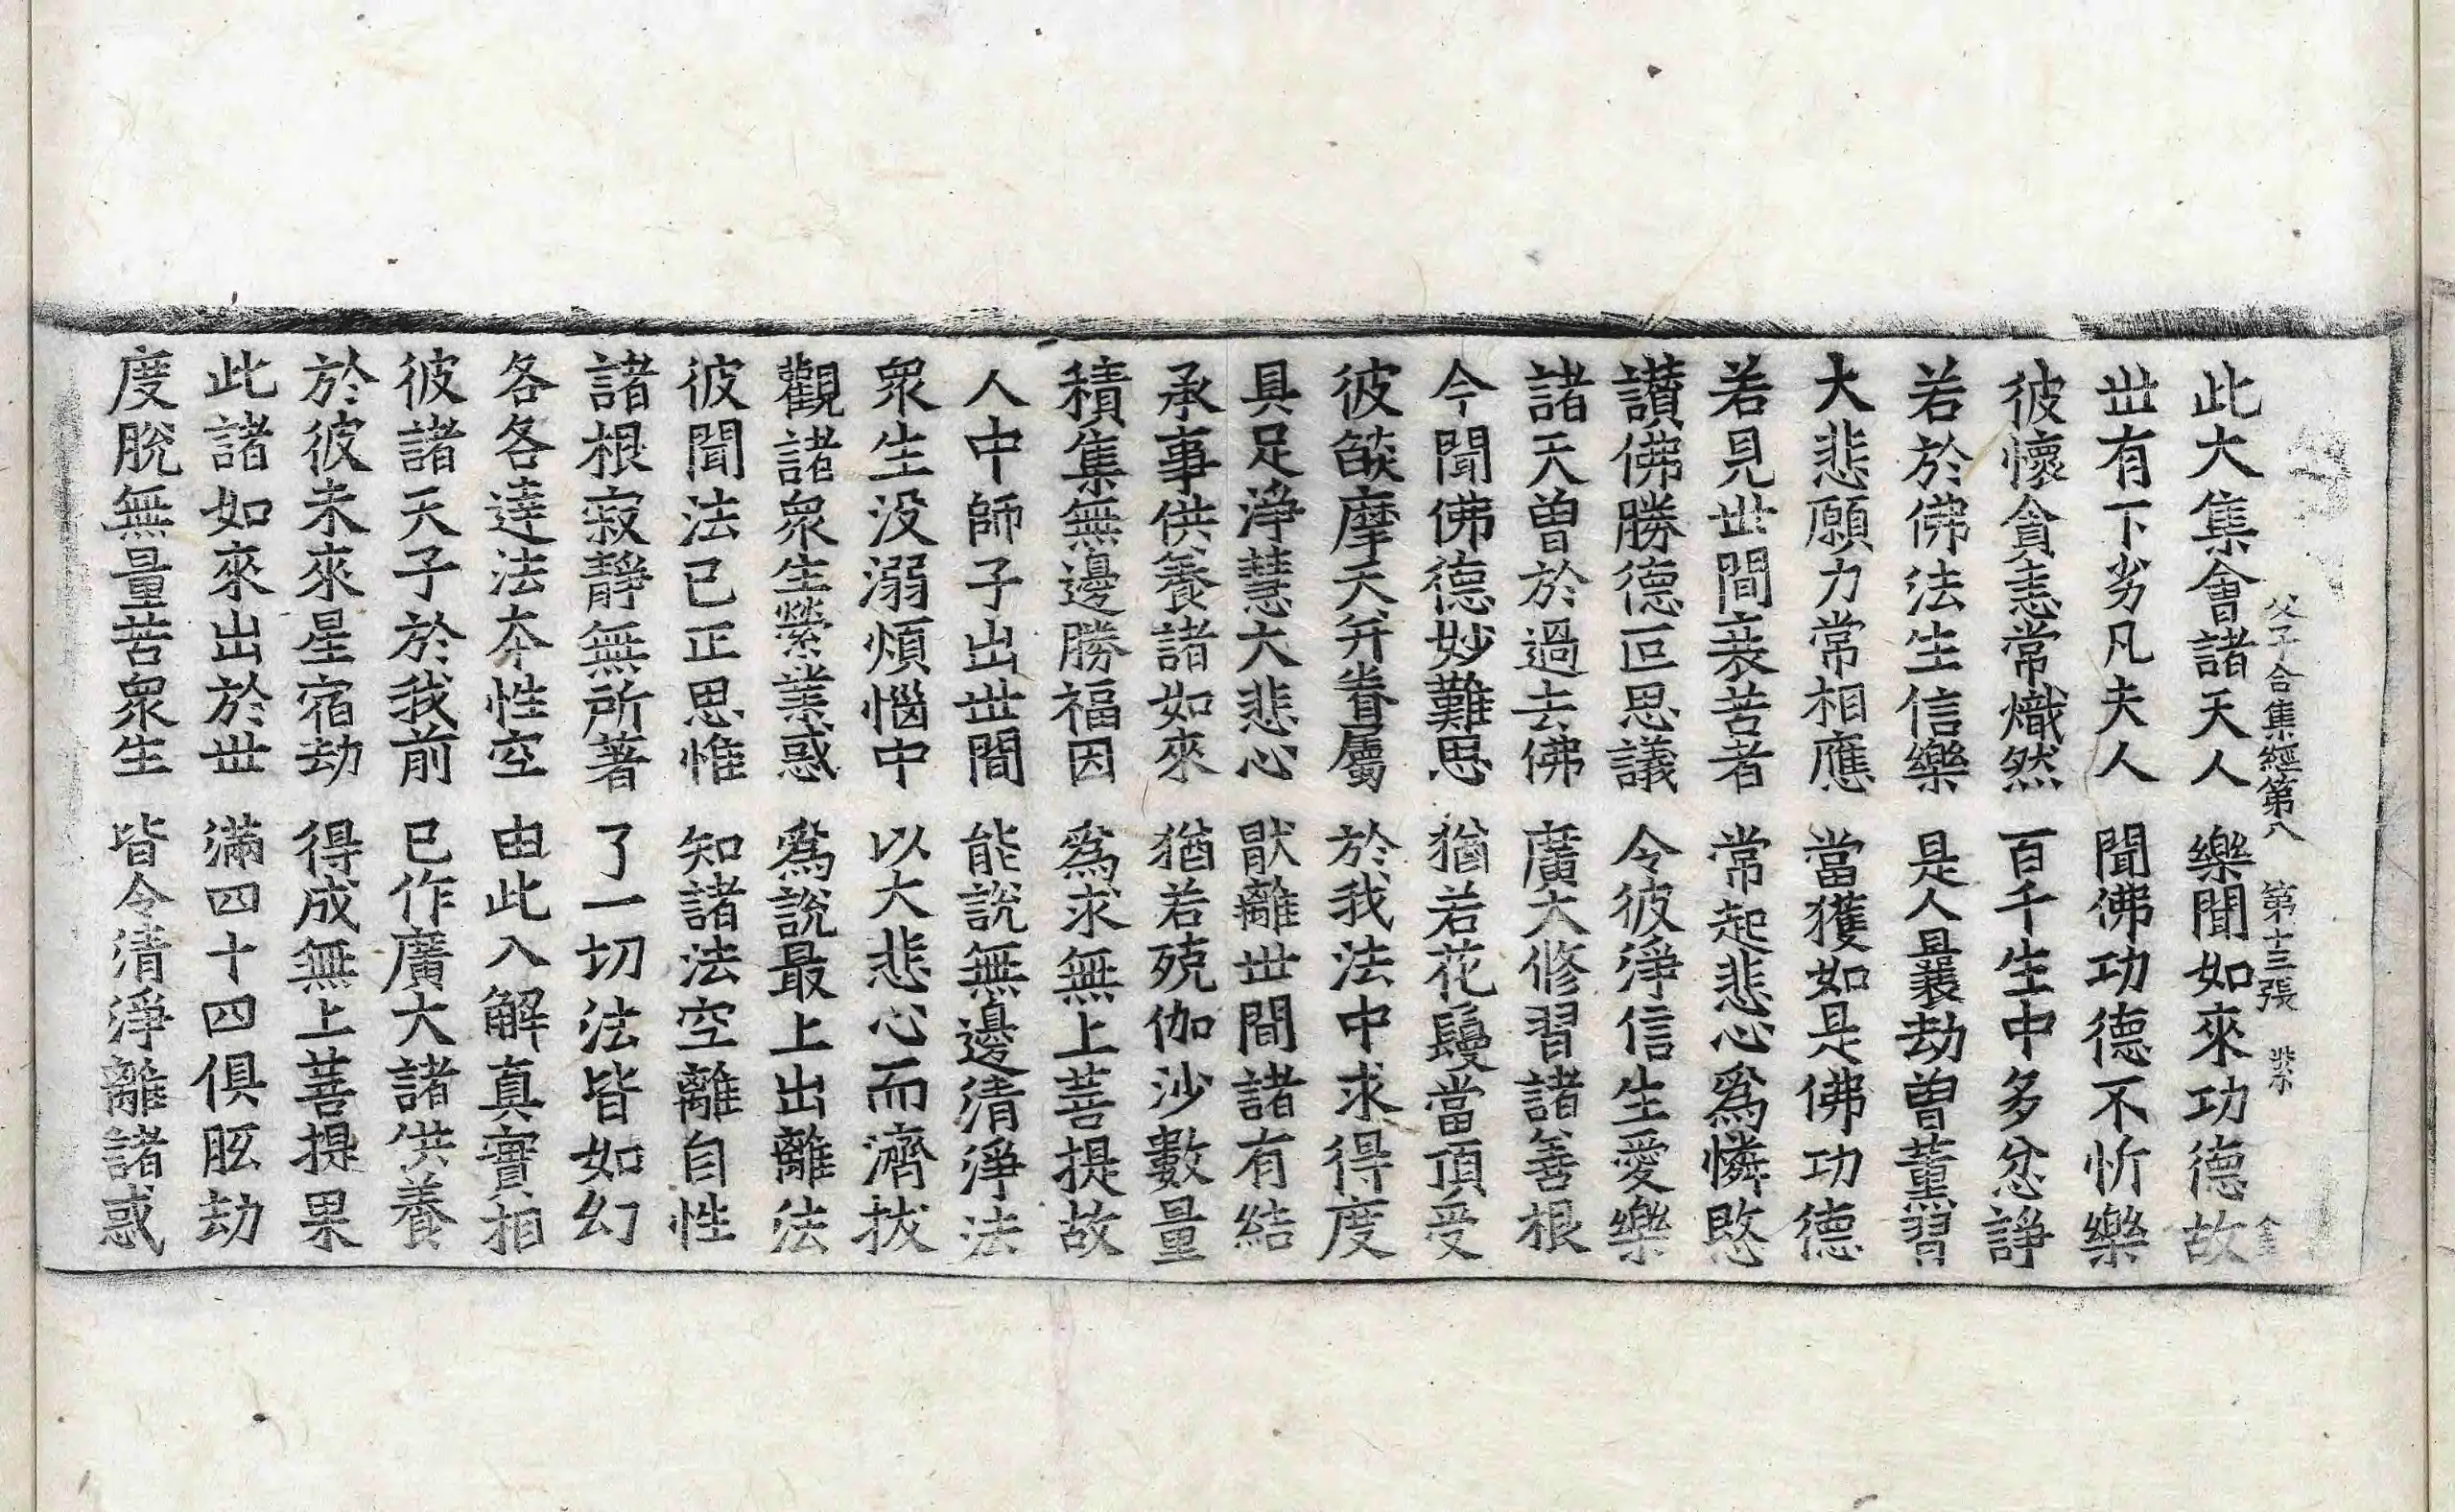 父子合集經第八 第十三張
此大集會諸天人 樂聞如來功德故
世有下劣凡夫人 聞佛功德不忻樂
彼懷貪恚常熾然 百千生中多忿諍
若於佛法生信樂 是人曩劫曾薰習
大悲願力常相應 當獲如是佛功德
若見世間衰苦者 常起悲心爲憐愍
讃佛勝德叵思議 令彼淨信生愛樂
諸天曾於過去佛 廣大修習諸善根
今聞佛德妙難思 猶若花鬘當頂受
彼燄摩天并眷屬 於我法中求得度
具足淨慧大悲心 猒離世間諸有結
承事供養諸如來 猶若殑伽沙數量
積集無邊勝福因 爲求無上菩提故
人中師子出世間 能說無邊清淨法
衆生没溺煩惱中 以大悲心而濟拔
觀諸衆生縈業惑 爲說最上出離法
彼聞法已正思惟 知諸法空離自性
諸根寂靜無所著 了一切法皆如幻
各各達法本性空 由此入解真實相
彼諸天子於我前 已作廣大諸供養
於彼未來星宿劫 得成無上菩提果
此諸如來出於世 滿四十四俱胝劫
度脫無量苦衆生 皆令清淨離諸惑